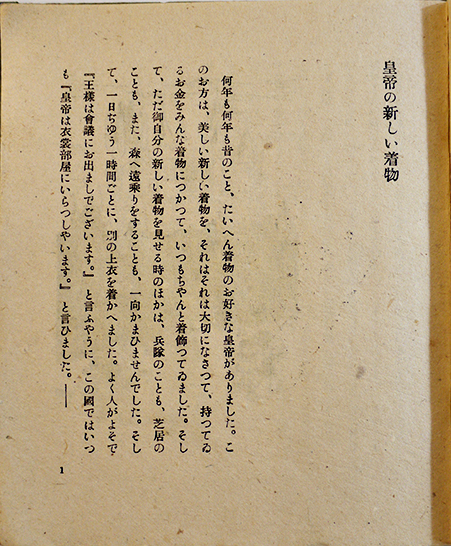 皇帝の新しい着物
何年も何年も昔のこと、たいへん着物のお好きな皇帝がありました。こ
のお方は、美しい新しい着物を、それはそれは大切になさつて、持つてゐ
るお金をみんな着物につかつて、いつもちやんと着飾つてゐました。そし
て、ただ御自分の新しい着物を見せる時のほかは、兵隊のことも、芝居の
ことも、また、森へ遠乘りをすることも、一向かまひませんでした。そし
て、一日ぢゆう一時間ごとに、別の上衣を着かへました。よく人がよそで
『王樣は會議にお出ましでございます。』と言ふやうに、この國ではいつ
も『皇帝は衣裳部屋にいらつしやいます。』と言ひました。――
1